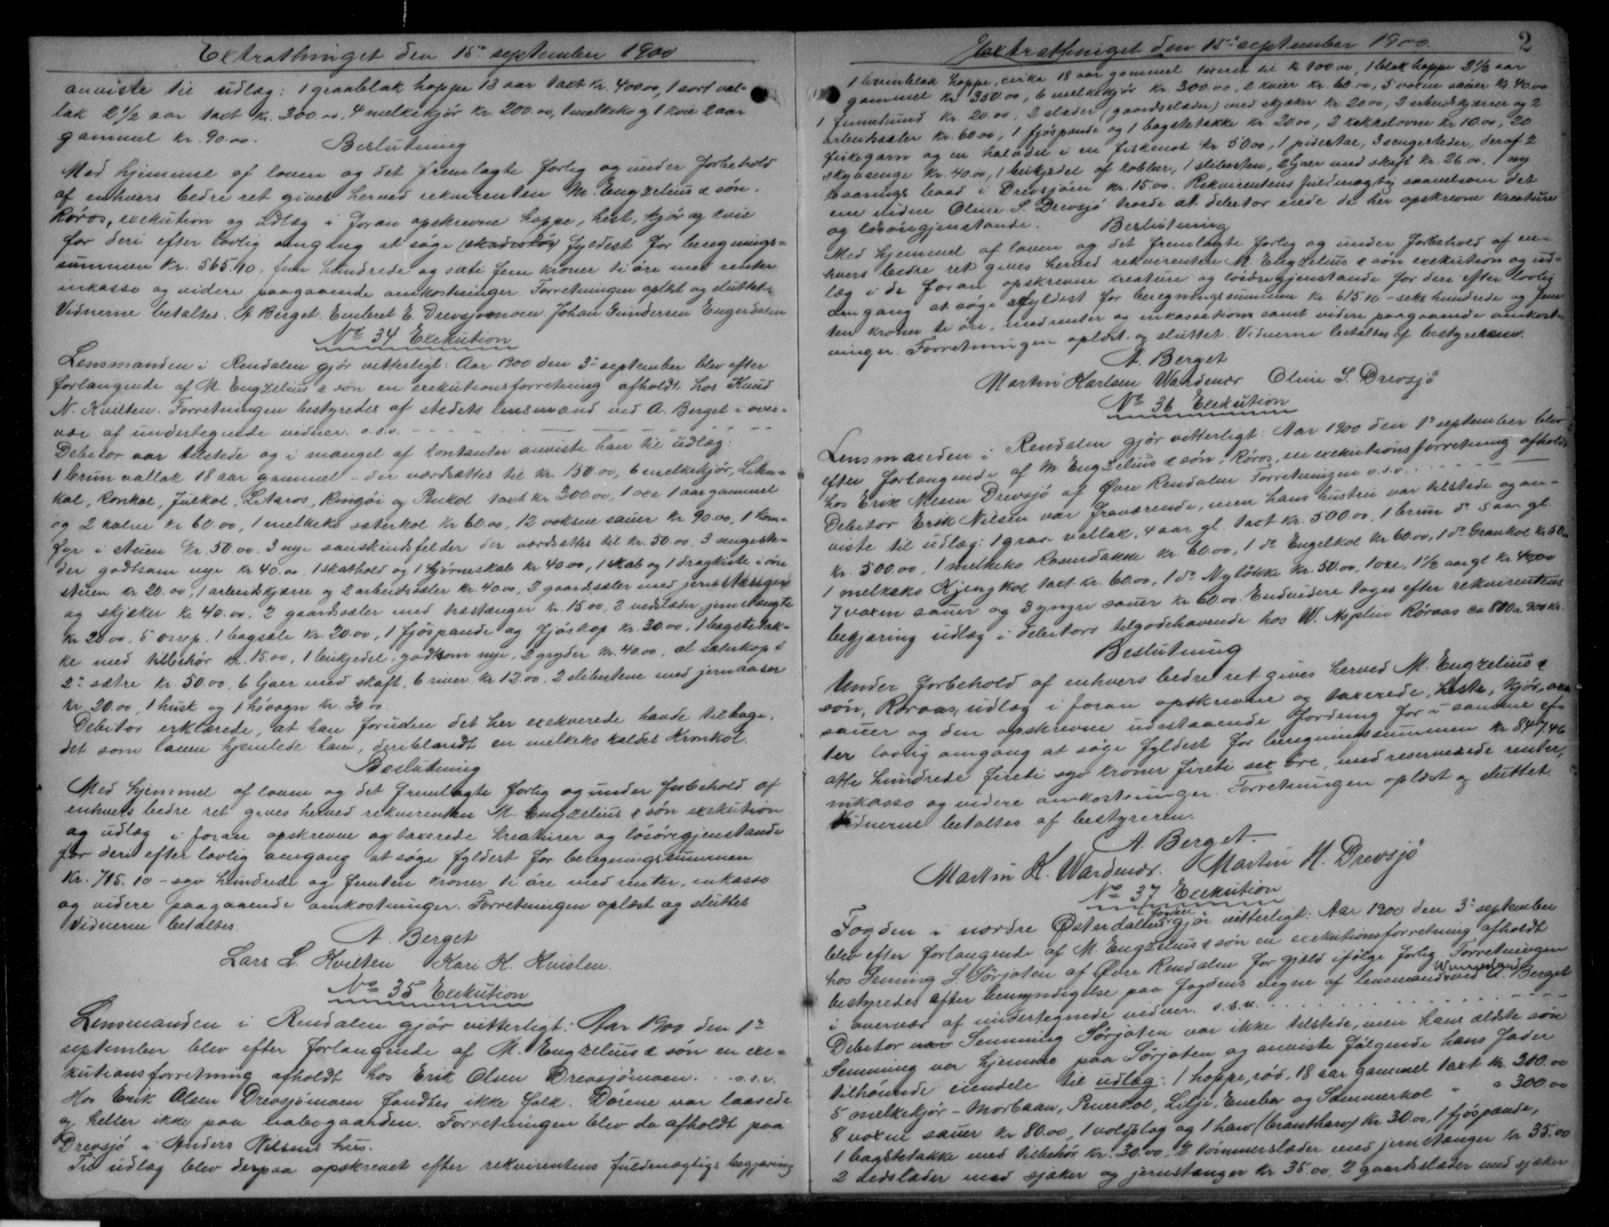 Extrathinget den 15de september 1900
anviste til udlæg: 1 graablak hoppe 13 aar taxt kr. 400.00, 1 sort val-
lak 2½ aar taxt kr. 300.00, 4 melkekjör kr. 200.00, 1 melkeko og 1 kvie 2 aar
gammel kr. 90.00.
Beslutning
Med hjemmel af loven og det fremlagte forlig og under forbehold
af enhvers bedre ret gives herved rekvirenten M. Engzelius & søn.
Röros, exekution og udlæg i foran opskrevne hoppe, hest, kjör og kvie
for deri efter lovlig omgang at søge fyldest for beregnings-
summen kr. 565.10. fem hundrede og seksti fem kroner ti öre med renter
inkasso og videre paagaaende omkostninger. Forretningen oplæst og sluttet.
Vidnerne betaltes. A Berget. Embret E. Drevsjømoen Johan Gundersen Engerdalen
No 34 Exekution
Lensmanden i Rendalen gjör vitterligt: Aar 1900 den 3de september blev efter
forlangende af M. Engzelius & søn en exekutionsforretning afholdt hos Knud
N. Kvilten. Forretningen bestyredes af stedets lensmand ved A. Berget i over-
vær af undertegnede vidner. o.s.v.
Debitor var tilstede og i mangel af kontanter anviste han til udlæg:
1 brun vallak 18 aar gammel - der værdsattes til kr. 150.00, 6 melkekjör,
kol, Ronkol, Julkol, Litaros, Ringöi og taxt kr. 300.00, 1 oxe 1 aar gammel
og 2 kalve kr 60.00, 1 melkeko sæterkol kr 60.00, 12 voksne sauer kr 90.00, 1 kom-
fyr i stuen kr. 50.00. 3 nye saueskindsfelder der værdsattes til kr. 30.00. 3 sengeste-
der godtsom nye kr 40.00, 1 skathold og 1 hjørneskab kr 40.00, 1 skab og 1 dragkiste i övre
stuen kr 20.00, 1 arbeidskjærre og 2 arbeidssæler kr. 40.00, 3 gaardssæler med jernstænger
og skjæker kr 40.00, 2 gaardssæler med træstænger kr. 15.00, 2 vedslæder jernstængte
kr 20.00, 5 1 bagsæle kr. 20.00, 1 fjöspande og fjöskop kr. 30.00, 1 bagstetak-
ke med tilbehör kr. 15.00, 1 brukjedel, godtsom nye, 3 gryder kr. 40.00, al sæterkop i
2de sætre kr. 50.00, 6 ljaer med skaft, 6 river kr 12.00, 2 slibestene med jernaaser
kr. 20.00, 1 husk og 1 hövogn kr. 30.00
Debitor erklærede, at han foruden det her exekverede havde tilbage,
det som loven hjemlede ham, deriblandt en melkeko kaldet Kronkol.
Beslutning
Med hjemmel af loven og det fremlagte forlig og under forbehold af
enhvers bedre ret gives herved rekvirenten M. Engzelius & søn exekution
og udlæg i foran opskrevne og taxerede kreaturer og lösöregjenstande
for deri efter lovlig omgang at søge fyldest for beregningssummen
kr. 715.10 - syv hundrede og femten kroner ti öre med renter, inkasso
og videre paagaaende omkostninger. Forretningen oplæst og sluttet
Vidnerne betaltes.
A. Berget
Lars L. Kvilten Kari K. Kvislen.
No 35 Exekution
Lensmanden i Rendalen gjör vitterligt: Aar 1900 den 1ste
september blev efter forlangende af M. Engzelius & søn en exe-
kutionsforretning afholdt hos Erik Olsen Drevsjömoen. - o.s.v.
Hos Erik Olsen Drevsjömoen fandtes ikke folk. Dörene var laasede
og heller ikke paa nabogaarden. Forretningen blev da afholdt paa
Drevsjö i Anders Nilsens hus.
Til udlæg blev derpaa opskrevet efter rekvirentens fuldmægtigs begjæring
Extrathinget den 15de september 1900.
2
1 brunblak hoppe, cirka 18 aar gammel taxeret til kr 100.00, 1 blak hoppe 2½ aar
gammel kr. 350.00, 6 melkekjör kr. 300.00, 2 kvier kr. 60.00, 5 voxne sauer kr. 40.00
1 kr. 20.00, 2 slæder (gaardsslæder) med skjæker kr. 20.00, 2 arbeidskjærrer og 2
arbeidssæler kr. 60.00, 1 fjöspande og 1 bagstetakke kr. 20.00, 2 kakkelovne kr 10.00, 20
fiskegarn og en halvdel i en fiskenot kr 50.00, 1 pidestal, 3 sengesteder, deraf 2
skyvsenge kr. 40.00, 1 brukjedel af kobber, 1 slibesten, 2 ljaer med skaft kr. 26.00, 1 ny
baad i Drevsjöen kr. 15.00. Rekvirentens fuldmægtig saavelsom det
ene vidne Oline S. Drevsjö troede at debitor eiede de her opskrevne kreature
og lösöregjenstande.
Beslutning
Med hjemmel af loven og det fremlagte forlig og under forbehold af en-
hvers bedre ret gives herved rekvirenten M. Engzelius & søn exekution og ud-
læg i de foran opskrevne kreature og lösöregjenstande for deri efter lovlig
omgang at søge fyldest for beregningssummen kr. 615.10 - seks hundrede og fem-
ten kroner ti öre, med renter og inkassation samt videre paagaaende omkost-
ninger. Forretningen oplæst og sluttet. Vidnerne betaltes af bestyreren.
A. Berget
Martin Karlsen Wardenær Oline S. Drevsjö
No 36 Exekution
Lensmanden i Rendalen gjør vitterligt: Aar 1900 den 1ste september blev
efter forlangende af M. Engzelius & søn, Röros, en exekutionsforretning afholdt
hos Erik Nilsen Drevsjö af Övre Rendalen. Forretningen o.s.v.
Debitor Erik Nilsen var fraværende, men hans hustru var tilstede og an-
viste til udlæg: 1 graa vallak, 4 aar gl. taxt kr. 500.00, 1 brun do 5 aar gl.
kr. 500.00, 1 melkeko Rosendokke kr. 60.00, 1 do Engelkol kr 60.00, 1 do Graukol kr. 50.00
1 melkeko Kjengkol taxt kr. 60.00, 1 do Nylökke kr. 50.00, 1 oxe, 1½ aar gl kr. 40.00
7 voxne sauer og 3 yngre sauer kr. 60.00. Endvidere toges efter rekvirentens
begjæring udlæg i debitors tilgodehavende hos W. Röraas ca 800 a 900 kr.
Beslutning
Under forbehold af enhvers bedre ret gives herved M. Engzelius &
søn, Röraas, udlæg i foran opskrevne og taxerede heste, kjör, oxe
sauer og den opskrevne udestaaende fordring for i samme ef-
ter lovlig omgang at søge fyldest for beregningssummen kr 847,46
otte hundrede firti syv kroner firti sex öre, med reserverede renter,
inkasso og videre omkostninger. Forretningen oplæst og sluttet.
Vidnerne betaltes af bestyreren.
A. Berget.
Martin K. Wardenær. Martin H. Drevsjö
No 37 Exekution
Fogden i nordre Østerdalens gjör vitterligt: Aar 1900 den 3de september
blev efter forlangende af M. Engzelius & søn en exekutionsforretning afholdt
hos Semming S. Sörjoten af Övre Rendalen for gjæld ifölge forlig. Forretningen
bestyredes efter bemyndigelse paa fogdens vegne af lensmand ved A. Berget
i overvær af undertegnede vidner. o.s.v.
Debitor Semming Sörjoten var ikke tilstede, men hans ældste søn
Semming var hjemme paa Sörjoten og anviste følgende hans fader
tilhørende eiendele til udlæg: 1 hoppe, rød, 18 aar gammel taxt kr. 200.00
5 melkekjör - Morbaan, Lilje, Enebær og Sommerkol " " 300.00
8 voxne sauer kr 80.00, 1 voldplog og 1 harv (braatharv) kr 30.00, 1 fjöspande,
1 bagstetakke med tilbehör kr. 30.00, 2 tömmerslæder med jernstænger kr 35.00
2 vedslæder med sjæker og jernstænger kr 35.00, 2 gaardsslæder med sjæker